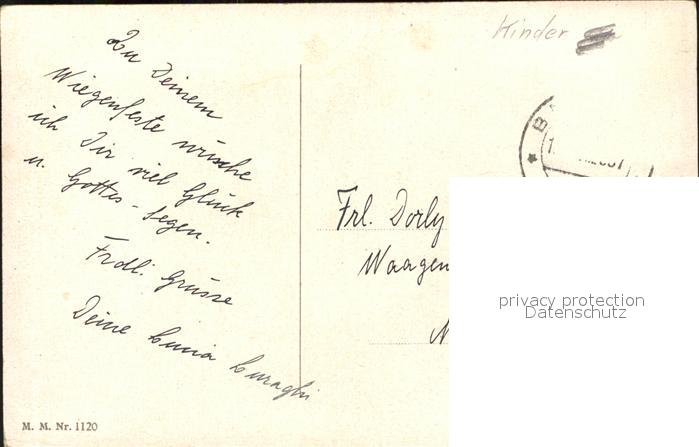 Kinder
Zu Deinem
Wiegenfeste wünsche
ich Dir viel Glück
u. Gottes-Segen.
Frdl. Grüsse
Deine
Frl. Dorly
Waagen
N
privacy protection
Datenschutz
M. M. Nr. 1120